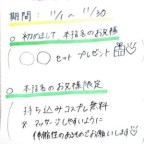 期間：11/1 〜 11/30
○ 初めまして 本指名のお客様
(○○セットプレゼント
○ 本指名のお客様限定
(持ち込みコスプレ無料
※マッサージしやすいように
伸縮性のあるものでお願いします